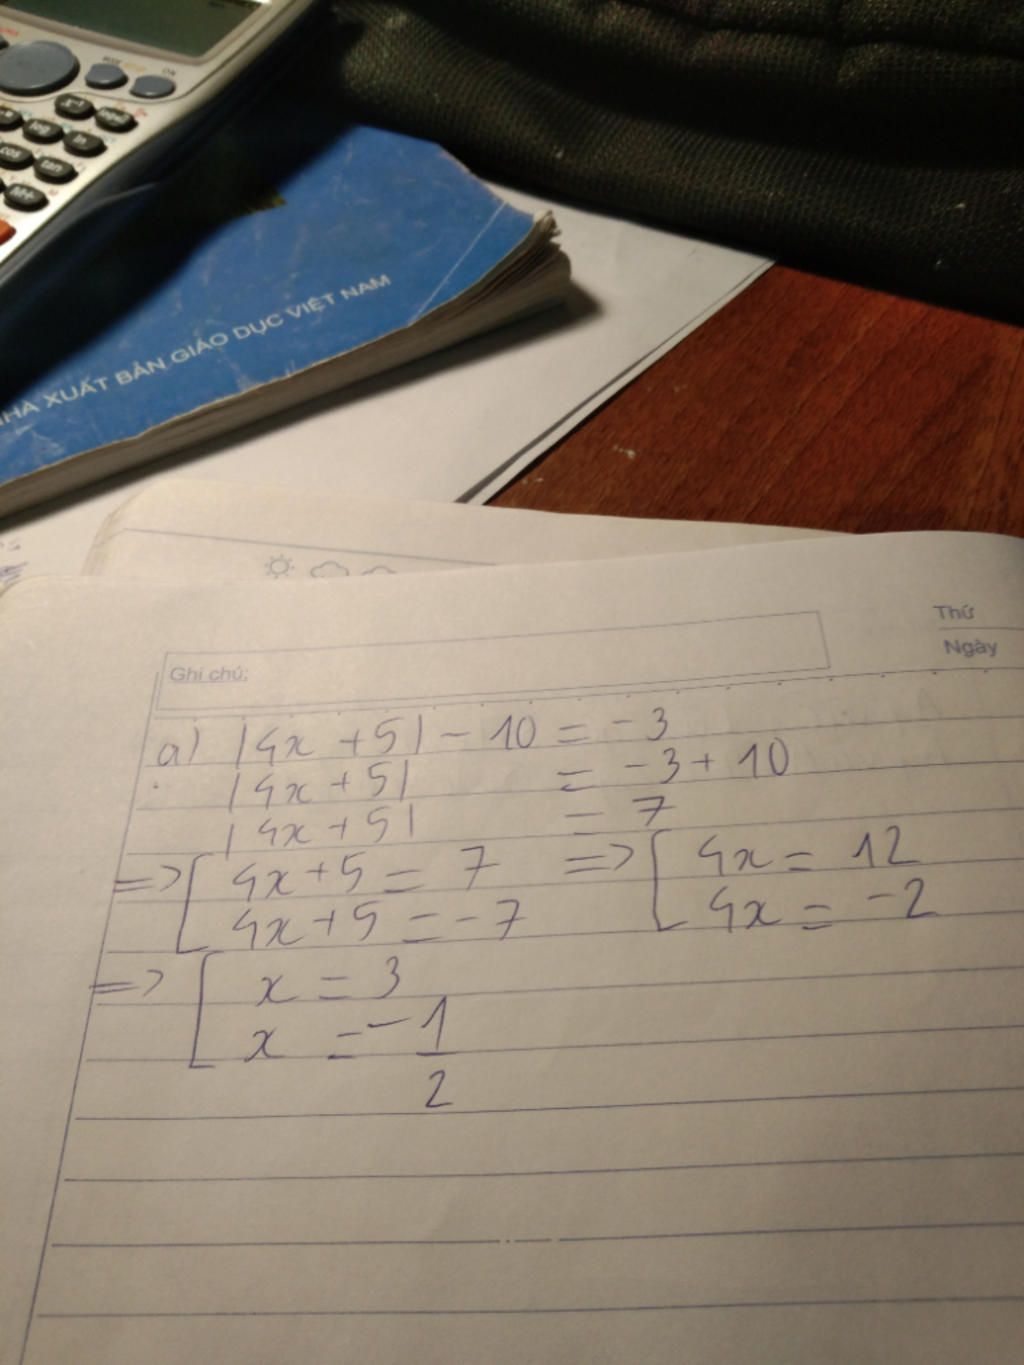 NHÀ XUẤT BẢN GIÁO DỤC VIỆT NAM
Thứ
Ngày
Ghi chú:
a) |4x + 5| - 10 = -3
|4x + 5| = -3 + 10
|4x + 5| = 7
=> [ 4x + 5 = 7 => [ 4x = 12
4x + 5 = -7 4x = -2
=> [ x = 3
x = -1/2